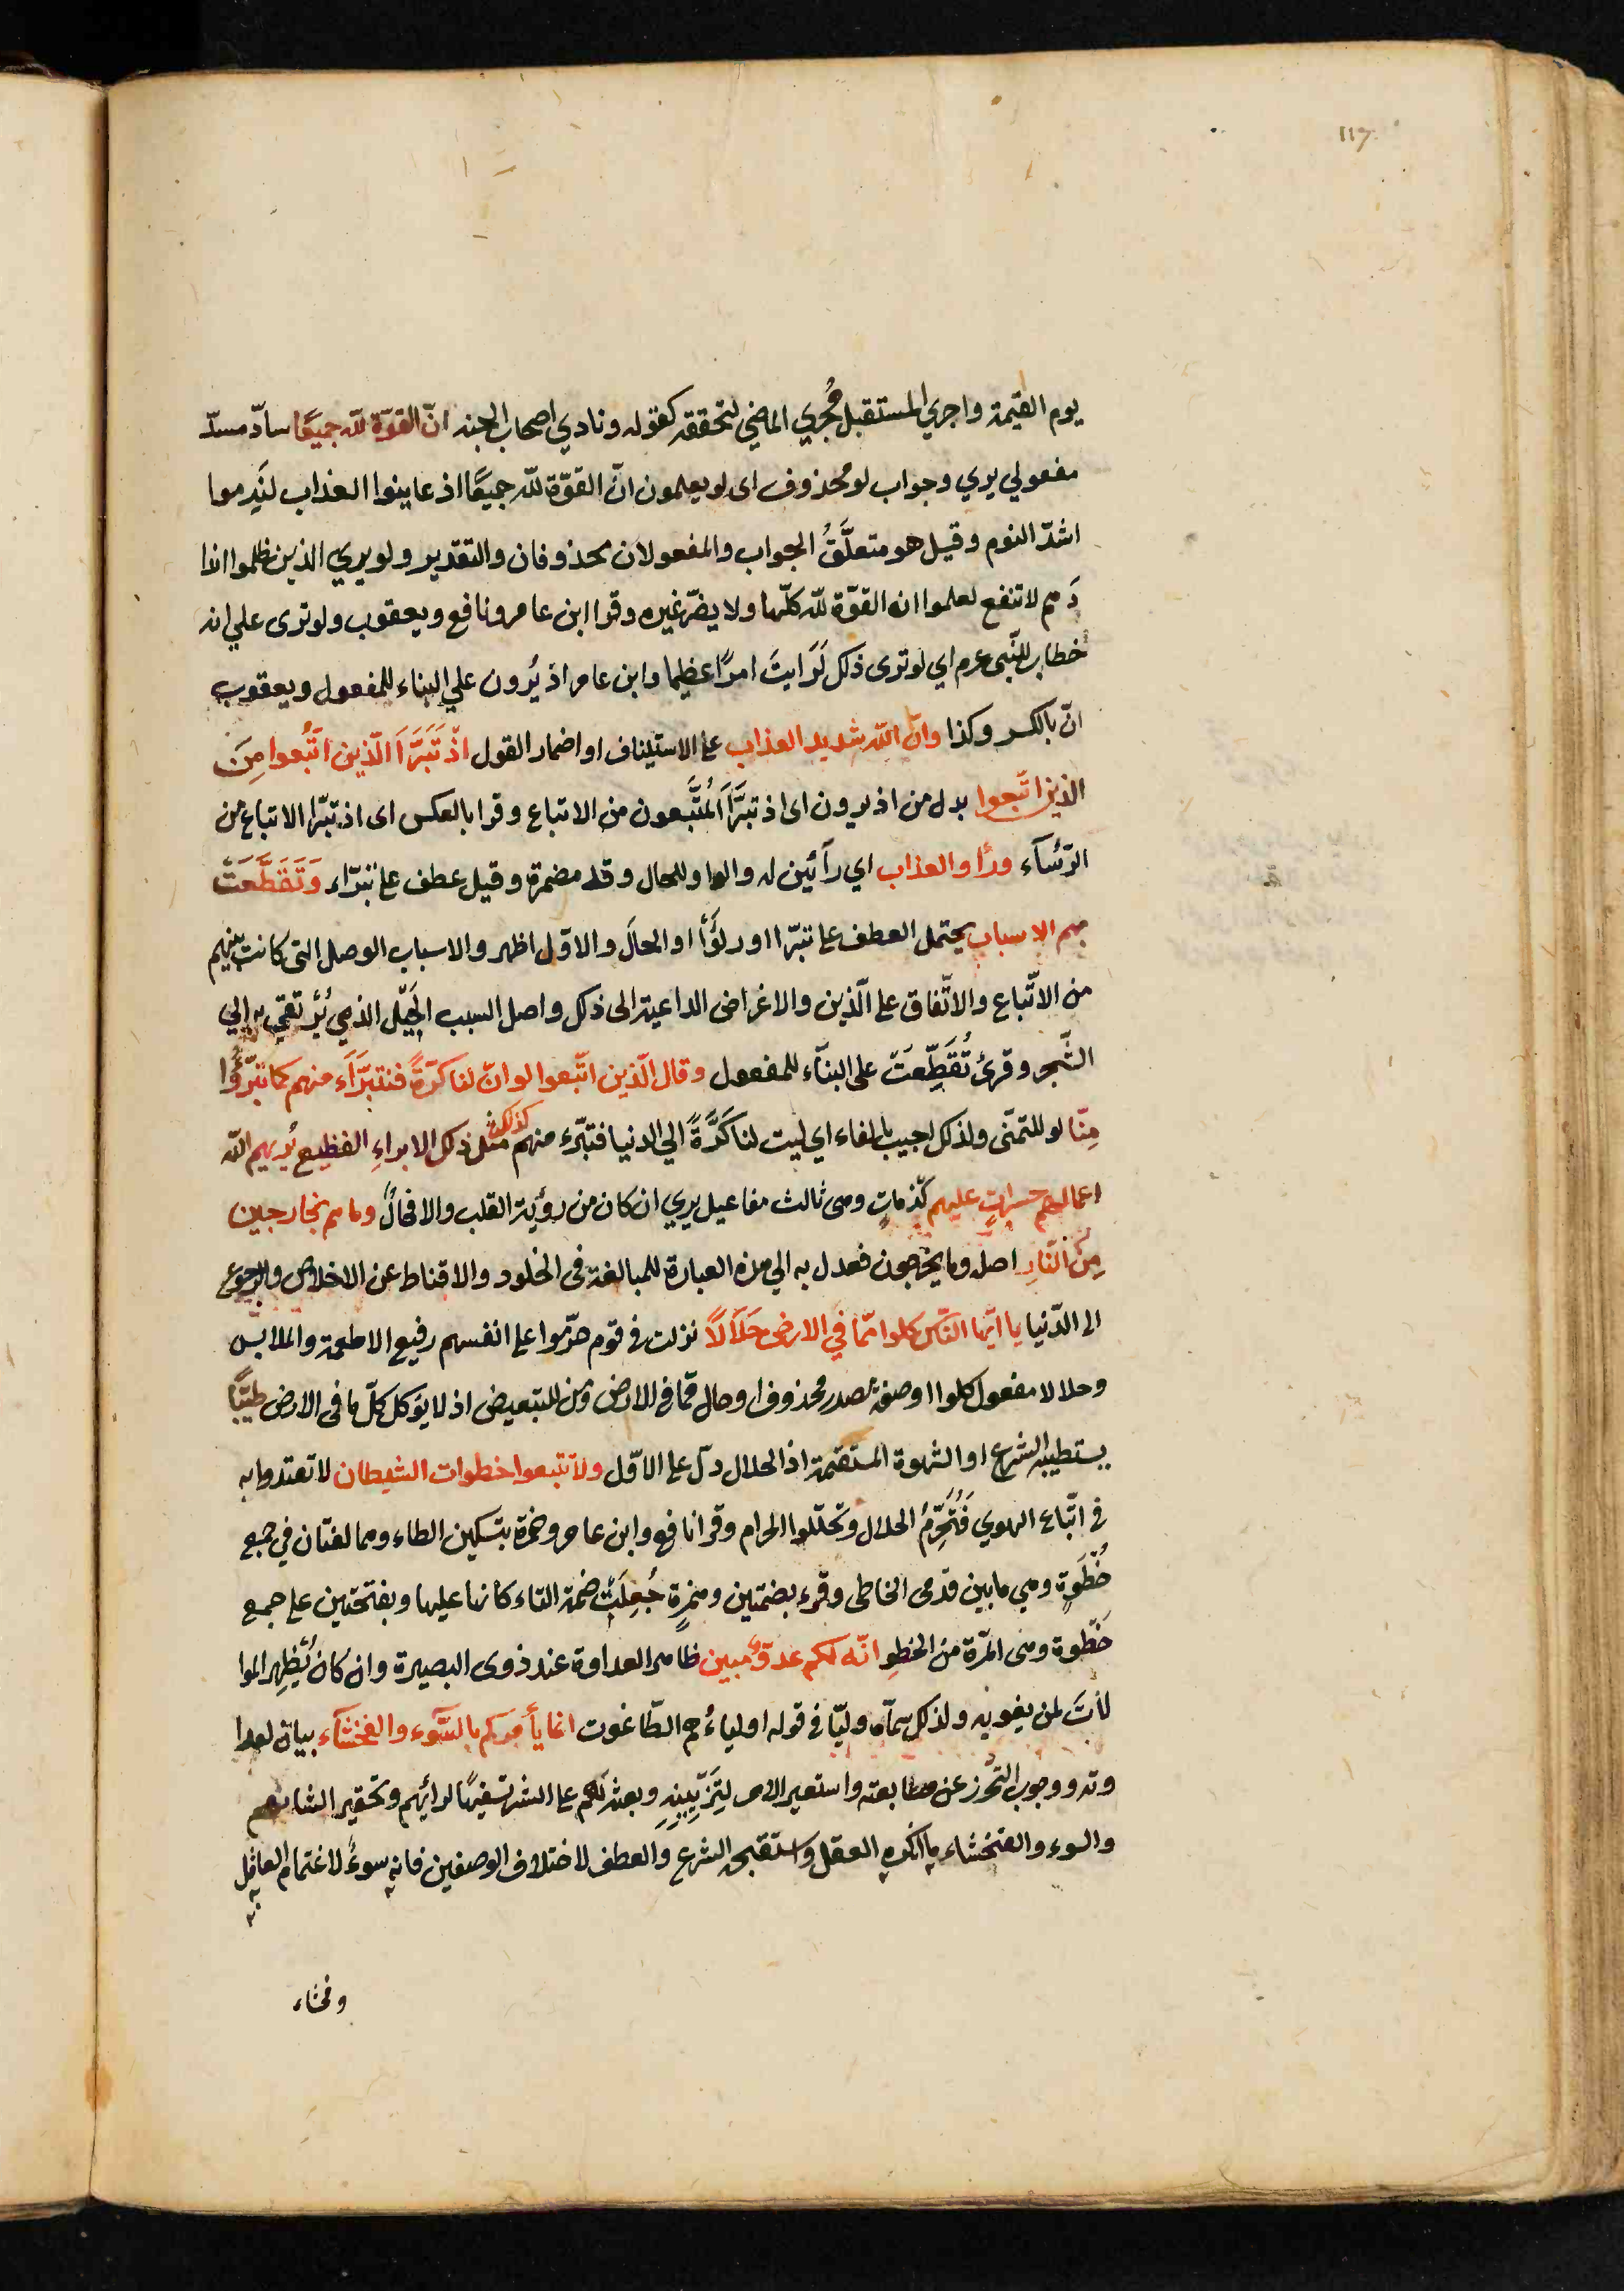 117
يوم القيمة واجري المستقبل مُجري الماضي لتحققه كقوله ونادي اصحاب الجنه انّ القوّة للّه جميعًا سادّ مسدّ
مفعولي يري وجواب لو محذوف اى لو يعلمون انّ القوّة للّه جميعًا اذ عاينوا العذاب لنَدِموا
اشدّ الندم وقيل هو متعلَّقُ الجواب والمفعولان محذوفان والتقدير ولو يري الذين ظلموا اندا
دَهم لا تنفع لعلموا انه القوّة للّه كلّها ولا يضرّ غيره وقرا ابن عامر ونافع ويعقوب ولو ترى علي انه
خطاب للنّبى عرم اي لو ترى ذلك لَرَايتَ امرًا عظيما وابن عامر اذ يُرون علي البناء للمفعول ويعقوب
انّ بالكسر وكذا وانّ اللّه شديد العذاب على الاستيناف او اضمار القول اذْ تَبَرَّاَ الّذين اتُّبعوا مِنَ
الذين اتّبعوا بدل من اذ يرون اى اذ تبرَّاَ المُتَّبَعون من الاتباع وقرا بالعكس اى اذ تبرّا الاتباع من
الرّئسآء ورأوا العذاب اي رآئين له والواو للحال وقد مضمرة وقيل عطف على تبرّاء وَتَقَطَّعَتْ
بهم الاسباب يحتمل العطف على تبرّا او رلؤا او الحالَ والاوّل اظهر والاسباب الوصل التى كانت بينهم
من الاتّباع والاتّفاق على الّذين والاغراض الداعية الى ذلك واصل السبب الحَبْل الذي يُرتقي به الي
الشّجر وقرئ تُقُطِّعَتْ على البنآء للمفعول وقال الّذين اتّبعوا لو انّ لنا كرّةً فنتبرّاَء منهم كما تبرّؤُا
مِنّا لو للتمنّى ولذلك اجيب بالفاء اي ليت لنا كَرَّةً الي الدنيا فنتبرّء منهم كذلك مثل ذلك الابراءِ الفظيع يُريهم اللّه
اعمالهم حسراتٍ عليهم نَدَماتٍ وهى ثالث مفاعيل يري ان كان من رؤية القلب والا فحالٌ وما هم بخارجين
مِنَ النّارِ اصله وما يخرجون فعدل به الي هذه العبارة للمبالغة فى الخلود والاقناط عن الاخلاص والرجوع
الى الدّنيا يا ايّها النّاس كلوا ممّا في الارض حَلَالاً نزلت فى قوم حرّموا على انفسهم رفيع الاطعمة والملابس
وحلالا مفعول كلوا او صفة مصدر محذوف او حال ممّا فى الارض ومن للتبعيض اذ لا يؤكل كلّ ما فى الارض طيّبًا
يستطيبه الشرع او الشهوة المستقيمة اذ الحلال دلّ على الاوّل ولا تتبعوا خطوات الشيطان لا تعتدوا به
فى اتّباع الهوي فَتُحَرِّمُ الحلال وتحلّلوا الحرام وقرا نافع وابن عامر وحمزة بتسكين الطاء وهما لغتان في جمع
خُطْوَةٍ وهي ما بين قدمى الخاطى وقرء بضمتين وهمزةٍ جُعِلَتْ ضمة التاء كانها عليها وبفتحتين على جمع
خَطْوة وهى المرّة من الخطو انّه لكم عدوّ مبين ظاهر العداوة عند ذوى البصيرة وان كان يُظهر الموا
لاتَ لمن يغويه ولذلك سمّاه وليّا فى قوله اولياءُهم الطّاغوت انما يأمركم بالسّوء والفحشآء بيان لعدا
وته ووجوب التحرّز عن مطابعته واستعير الامر لتزيينه وبعثه لهم على الشر تسفيهًا لرأيهم وتحقير الشانهم
والسوء والفحشاء ما انكره العقل واستقبحه الشرع والعطف لاختلاف الوصفين فانه سوءٌ لاغتمام العاقل
به
وفحشاء